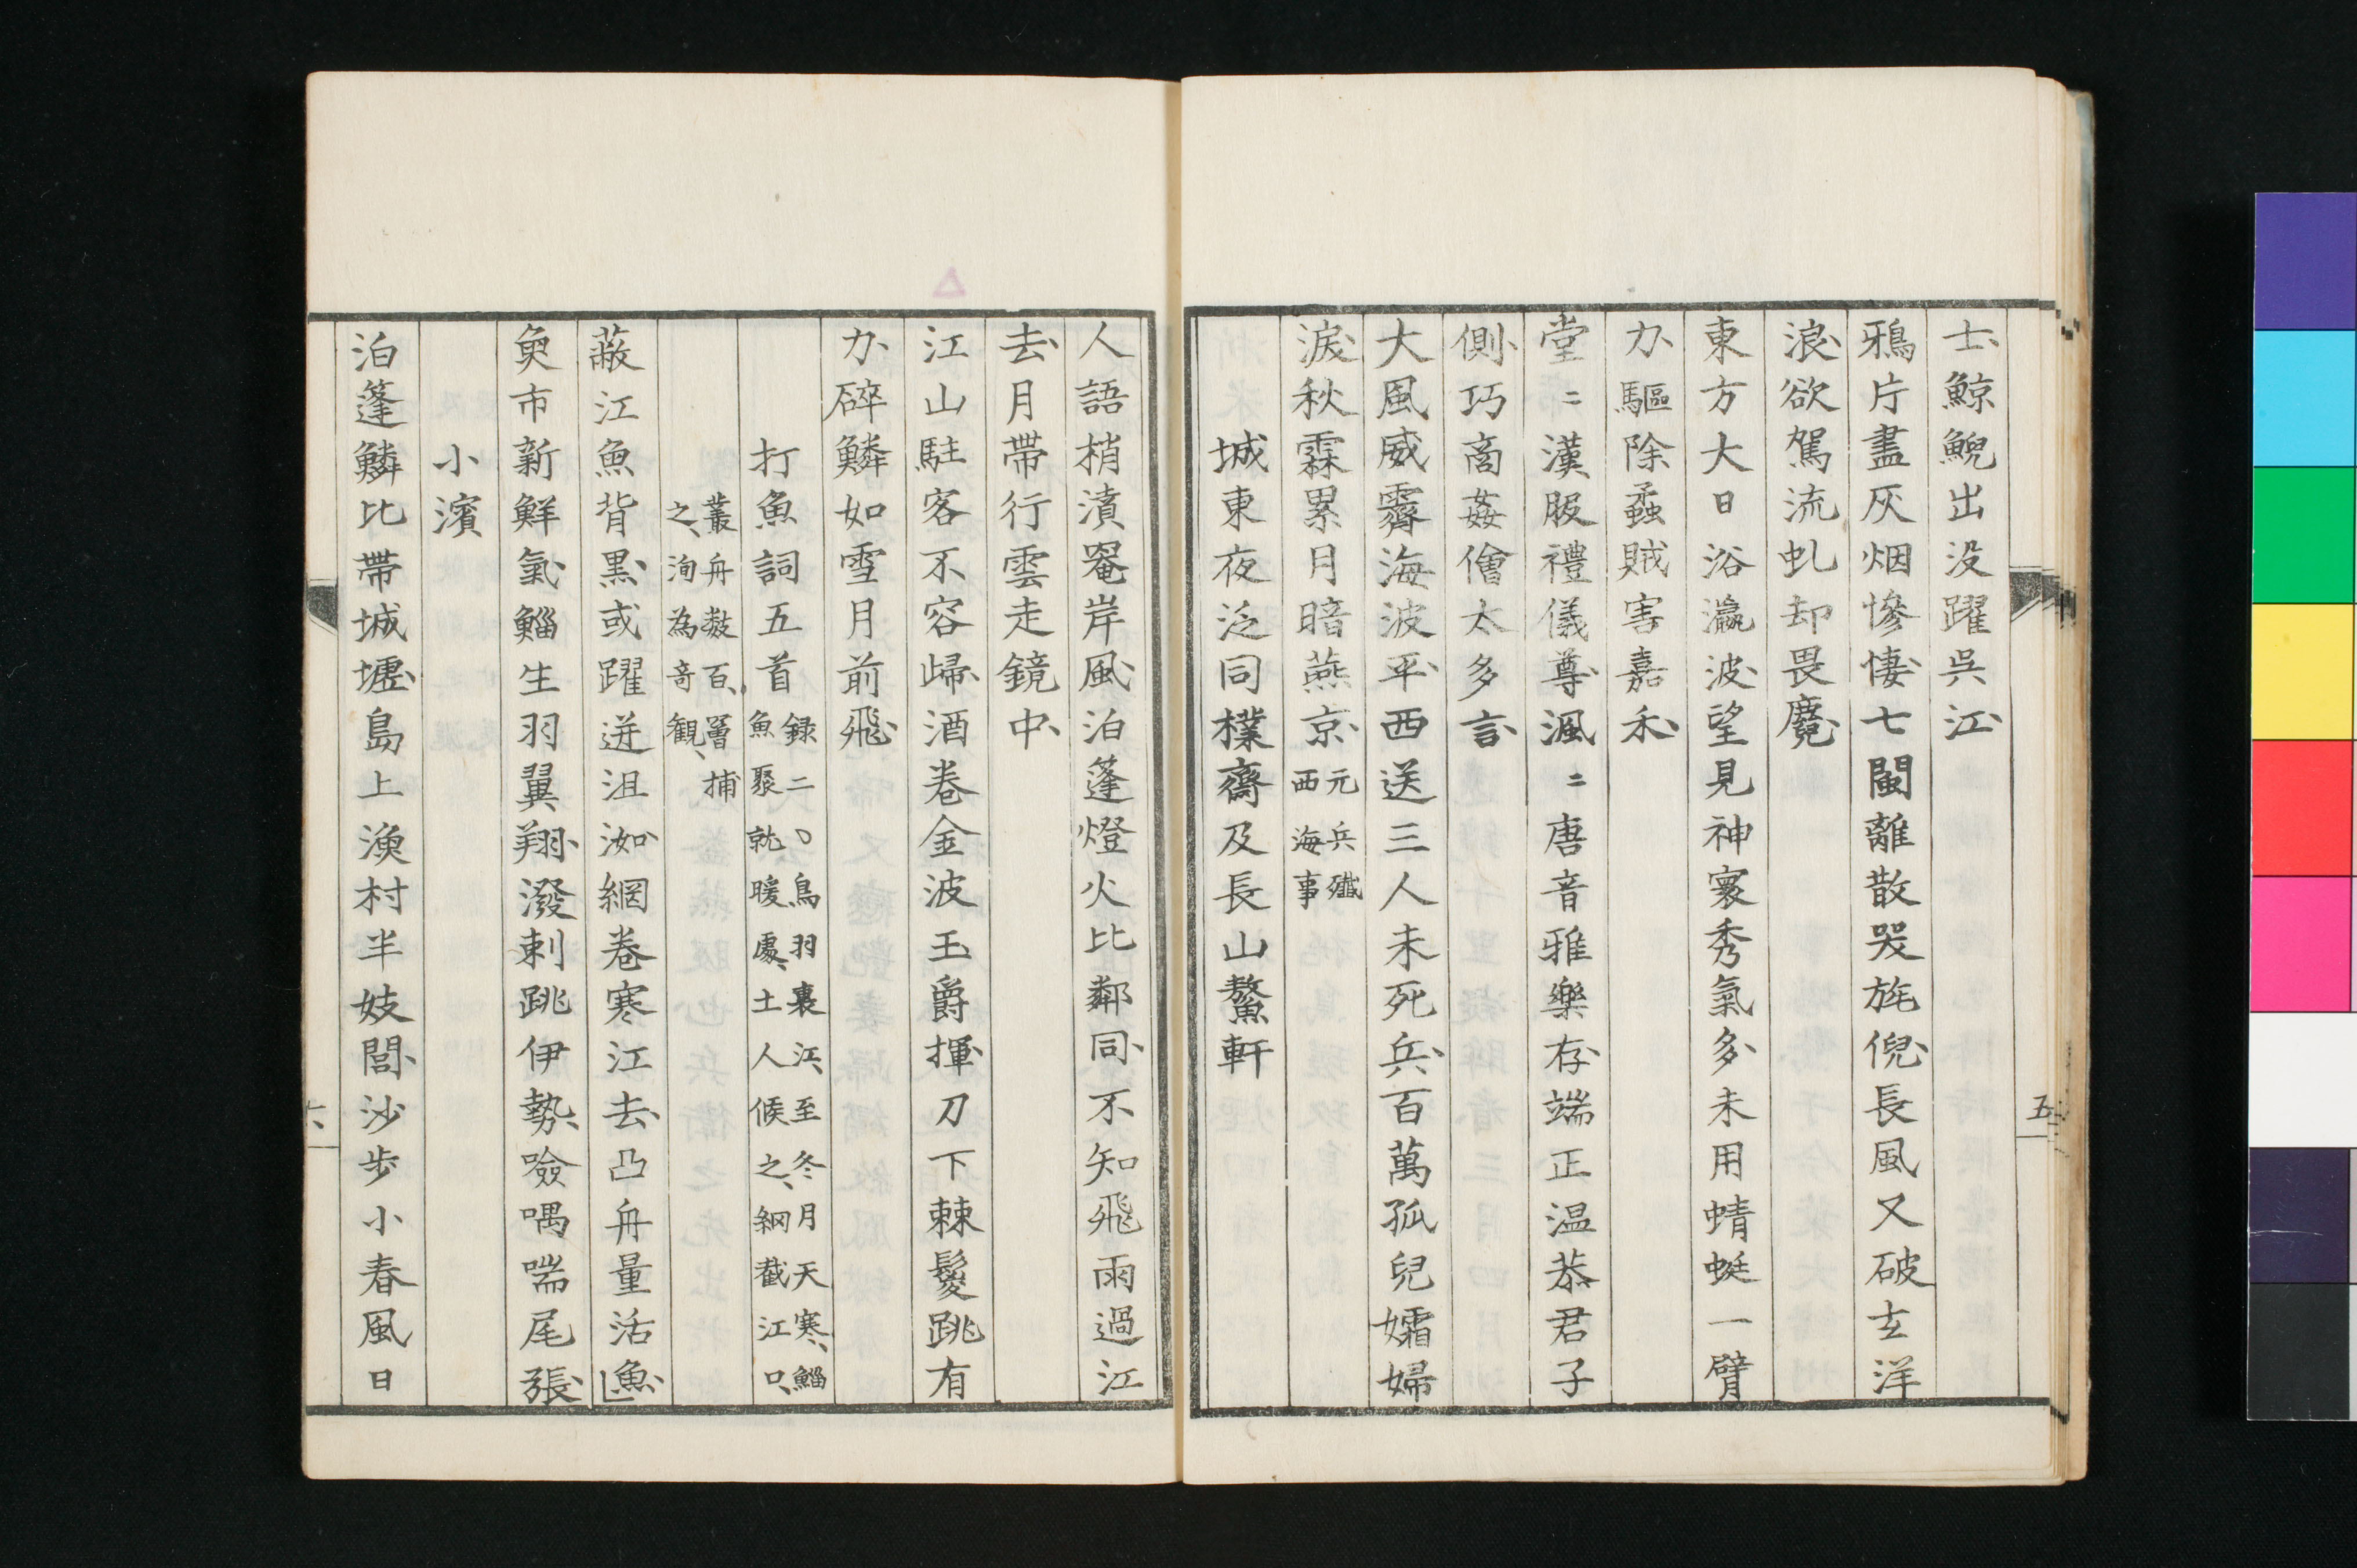 士、鯨鯢出没躍呉江、
鴉片盡灰烟慘悽、七閩離散哭旄倪、長風又破玄洋
浪、欲駕流虬却畏魔、
東方大日浴瀛波、望見神寰秀氣多、未用蜻蜓一臂
力、驅除蟊賊害嘉禾、
堂〻漢服禮儀尊、渢〻唐音雅樂存、端正温恭君子
側、巧商姦儈太多言、
大風威霽海波平、西送三人未死兵、百萬孤兒孀婦
淚、秋霖累月暗燕京、元兵殲西海事
城東夜泛同樸齋及長山鰲軒
五
人語梢漬罨岸風、泊蓬燈火比鄰同、不知飛雨過江
去、月帶行雲走鏡中、
江山駐客不容歸、酒卷金波玉爵揮、刀下棘鬘跳有
力、碎鱗如雪月前飛、
打魚詞五首 録二〇鳥羽裏江、至冬月天寒、鯔魚聚就暖處、土人候之、網截江口、
叢舟數百、罾捕之、洵為奇觀、
蔽江魚背黑、或躍迸沮洳、網卷寒江去、凸舟量活魚、
魚市新鮮氣、鯔生羽翼翔、潑剌跳伊勢、噞喁喘尾張、
小濱
泊篷鱗比帶城墟、島上漁村半妓閭、沙步小春風日
六